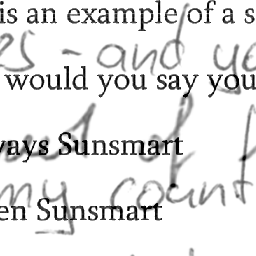 is an example of a s
es - and ye
would you say you
ways Sunsmart
out of f
my count
en Sunsmart